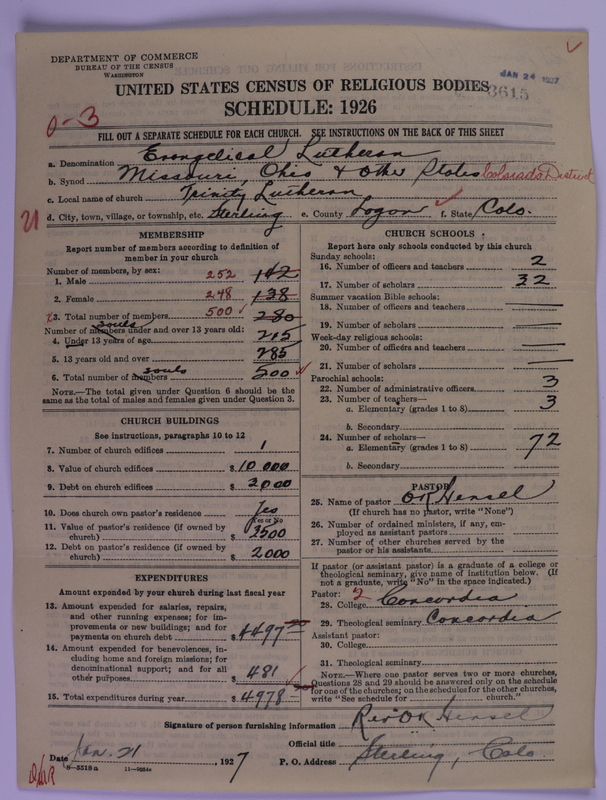 DEPARTMENT OF COMMERCE
BUREAU OF THE CENSUS
WASHINGTON
JAN 24 1927
3615
UNITED STATES CENSUS OF RELIGIOUS BODIES
SCHEDULE: 1926
0-3
FILL OUT A SEPARATE SCHEDULE FOR EACH CHURCH. SEE INSTRUCTIONS ON THE BACK OF THIS SHEET
a. Denomination Evangelical Lutheran
b. Synod Missouri, Ohio & Other States Colorado District
c. Local name of church Trinity Lutheran
21
d. City, town, village, or township, etc. Sterling e. County Logan f. State Colo.
MEMBERSHIP
Report number of members according to definition of member in your church
Number of members, by sex:
1. Male 252 142
2. Female 248 138
3. Total number of members 500 280
souls
Number of members under and over 13 years old:
4. Under 13 years of age 215
5. 13 years old and over 285
souls
6. Total number of members 500
NOTE.—The total given under Question 6 should be the same as the total of males and females given under Question 3.
CHURCH BUILDINGS
See instructions, paragraphs 10 to 12
7. Number of church edifices 1
8. Value of church edifices $ 10 000
9. Debt on church edifices $ 2000
10. Does church own pastor's residence? Yes
Yes or No
11. Value of pastor's residence (if owned by church) $ 3500
12. Debt on pastor's residence (if owned by church) $ 2000
EXPENDITURES
Amount expended by your church during last fiscal year
13. Amount expended for salaries, repairs, and other running expenses; for improvements or new buildings; and for payments on church debt $ 4497
14. Amount expended for benevolences, including home and foreign missions; for denominational support; and for all other purposes $ 481
15. Total expenditures during year $ 4978
CHURCH SCHOOLS
Report here only schools conducted by this church
Sunday schools:
16. Number of officers and teachers 2
17. Number of scholars 32
Summer vacation Bible schools:
18. Number of officers and teachers
19. Number of scholars
Week-day religious schools:
20. Number of officers and teachers
21. Number of scholars
Parochial schools:
22. Number of administrative officers 3
23. Number of teachers—
a. Elementary (grades 1 to 8) 3
b. Secondary
24. Number of scholars—
a. Elementary (grades 1 to 8) 72
b. Secondary
PASTOR
25. Name of pastor OK Hensel
(If church has no pastor, write "None")
26. Number of ordained ministers, if any, employed as assistant pastors
27. Number of other churches served by the pastor or his assistants
If pastor (or assistant pastor) is a graduate of a college or theological seminary, give name of institution below. (If not a graduate, write "No" in the space indicated.)
Pastor: 2
28. College Concordia
29. Theological seminary Concordia
Assistant pastor:
30. College
31. Theological seminary
NOTE.—Where one pastor serves two or more churches, Questions 28 and 29 should be answered only on the schedule for one of the churches; on the schedules for the other churches, write "See schedule for church."
Signature of person furnishing information Rev OK Hensel
Official title
Date Jan. 21, 1927 P. O. Address Sterling, Colo
8-5518a 11-9884